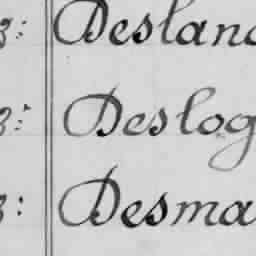 Desland
Deslog
Desma